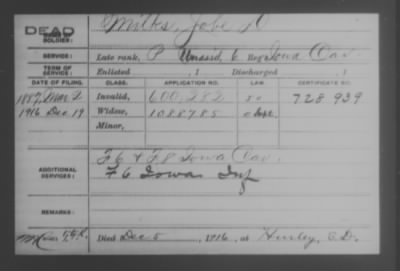 DEAD
SOLDIER: Milks, Jobe D
SERVICE: Late rank, P Unassd, 6 Reg't Iowa Cav
TERM OF SERVICE: Enlisted , 1 Discharged , 1
DATE OF FILING. CLASS. APPLICATION NO. LAW. CERTIFICATE NO.
1887, Mar 2 Invalid, 600,282 728 939
1916 Dec 19 Widow, 1088785
Minor,
ADDITIONAL SERVICES: F 6 & F 8 Iowa Cav.
F 6 Iowa Inf
REMARKS:
Died Dec 5 , 1916, at Hurley, S.D.